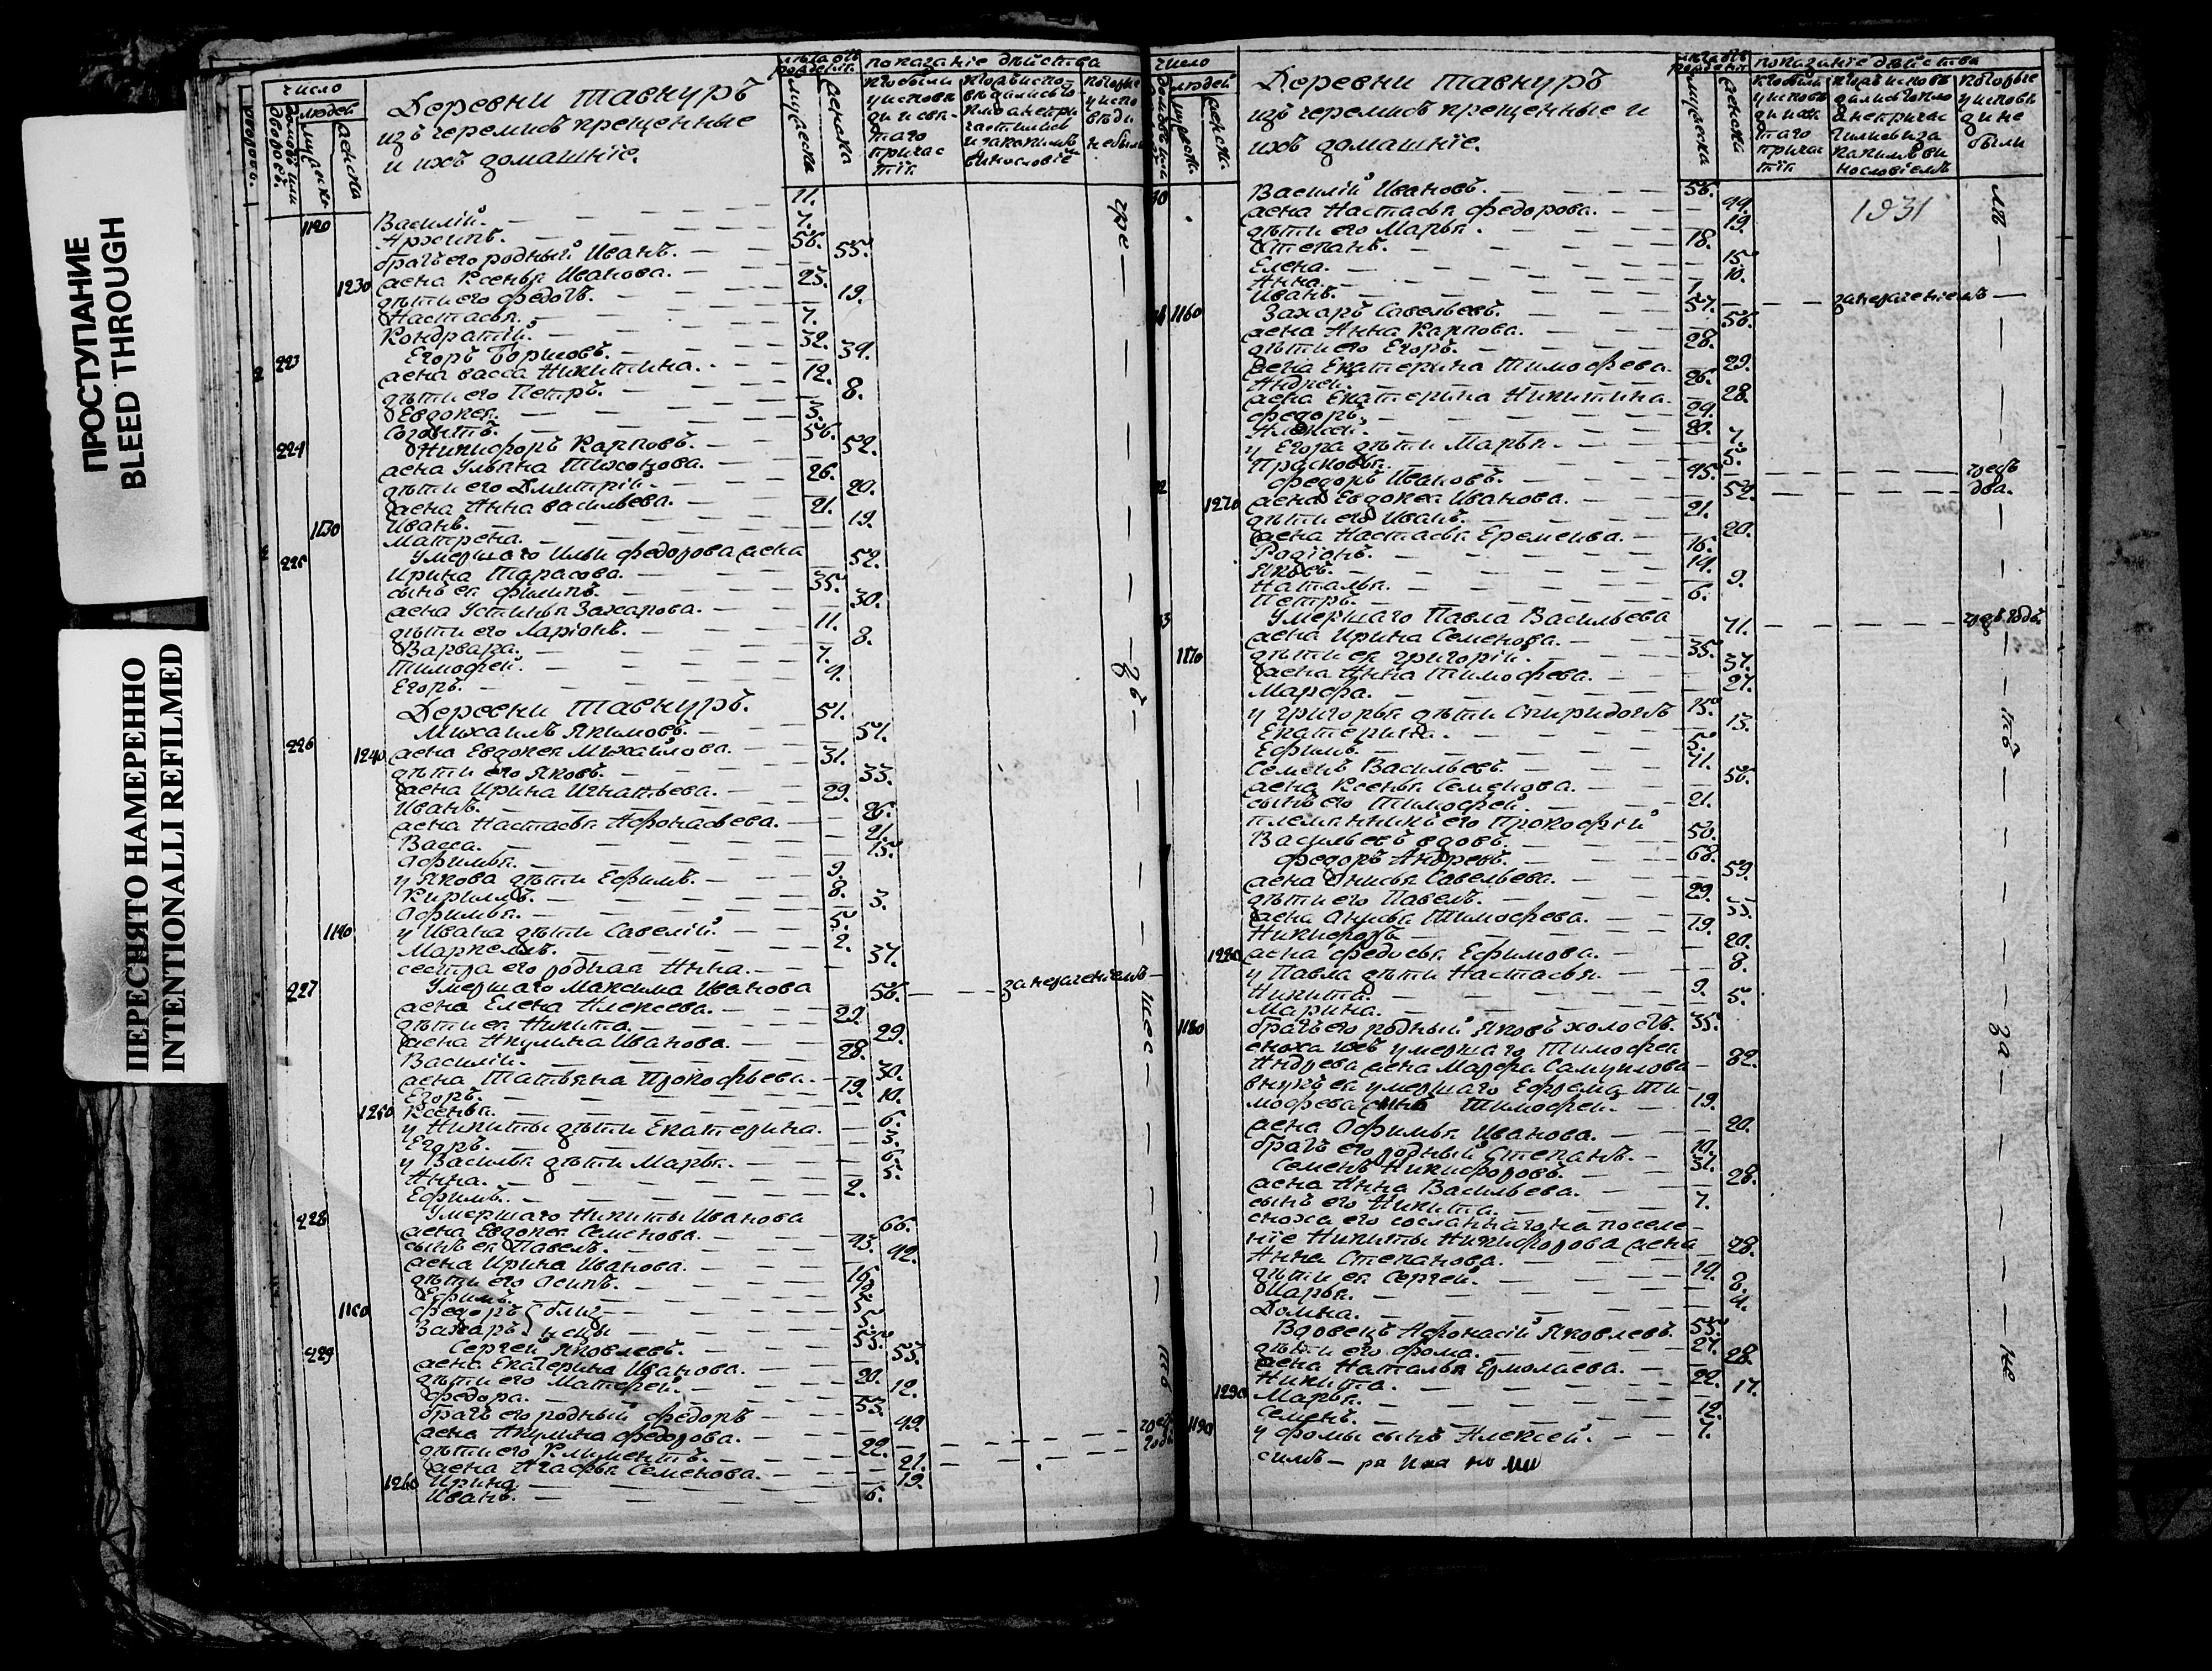 ПРОСТУПАНИЕ
BLEED THROUGH
ПЕРЕСНЯТО НАМЕРЕННО
INTENTIONALLI REFILMED
число
людей
Деревни тавнуръ
изъ черемисъ крещенные
и ихъ домашніе.
показаніе дѣйства
мужеска
женска
1120 Василій. 11.
Архипъ. 7.
братъ его родный Иванъ. 56.
жена Ксенья Иванова. 55.
1230 дѣти его Федотъ. 23.
Настасья. 19.
Кондратій. 7.
223 Егоръ Борисовъ. 32.
жена васса Никитина. 39.
дѣти его Петръ. 12.
Евдокея. 8.
Созонтъ. 3.
224 Никифоръ Карповъ. 56.
жена Ульяна Тихонова. 52.
дѣти его Дмитрій. 26.
жена Анна васильева. 20.
Иванъ. 21.
1130 Матрена. 19.
225 Умершаго Ильи федорова жена
Ирина Тарасова. 52.
сынъ ея филипъ. 35.
жена Устинья Захарова. 30.
дѣти его Ларіонъ. 11.
Варвара. 8.
Тимофей. 7.
Егоръ. 4.
Деревни тавнуръ.
226 Михаилъ Якимовъ. 51.
1240 жена Евдокея Михайлова. 51.
дѣти его Яковъ. 31.
жена Ирина Игнатьева. 33.
Иванъ. 29.
жена Настасья Афонасьева. 26.
Васса. 21.
Афимья. 15.
у Якова дѣти Ефимъ. 9.
Кирилъ. 8.
Афимья. 3.
1140 у Ивана дѣти Савелій. 5.
Маркелъ. 2.
сестра его родная Анна. 37.
227 Умершаго Максима Иванова
жена Елена Алексеева. 56. за нераченіемъ
дѣти ея Никита. 29.
жена Акулина Иванова. 29.
Василій. 28.
жена Татьяна Прокофьева. 30.
Егоръ. 19.
1250 Ксенья. 10.
у Никиты дѣти Екатерина. 6.
Егоръ. 3.
у Василья дѣти Марья. 6.
Анна. 5.
Ефимъ. 2.
228 Умершаго Никиты Иванова
жена Евдокея Семенова. 66.
сынъ ея Павелъ. 43.
жена Ирина Иванова. 42.
дѣти его Осипъ. 16.
Ефимъ.
1150 федоръ близ 5.
Захаръ нецы 5.
229 Сергей Яковлевъ. 55.
жена Екатерина Иванова. 53.
дѣти его Матфей. 20.
федора. 12.
братъ его родный федоръ 53.
жена Акулина федорова. 49.
дѣти его Климентъ. 22.
жена Агафья Семенова. 21.
1260 Ирина. 19.
Иванъ. 6.
число
людей
Деревни тавнуръ
изъ черемисъ крещенные и
ихъ домашніе.
показаніе дѣйства
мужеска
женска
1931
Василій Ивановъ. 56.
жена Настасья федорова. 49.
дѣти его Марья. 19.
Степанъ. 18.
Елена. 15.
Анна. 10.
Иванъ. 7.
1160 Захаръ Савельевъ. 57. за нераченіемъ
жена Анна Карпова. 56.
дѣти его Егоръ. 28.
жена Екатерина Тимофеева. 29.
Андрей. 26.
жена Екатерина Никитина. 28.
федоръ. 24.
Алексей. 20.
у Егора дѣти Марья. 7.
Прасковья. 5.
федоръ Ивановъ. 45.
1270 жена Евдокея Иванова. 52. два.
дѣти его Иванъ. 21.
жена Настасья Еремеива. 20.
Радіонъ. 16.
Яковъ. 14.
Наталья. 9.
Петръ. 6.
Умершаго Павла Васильева
жена Ирина Семенова. 71.
1170 дѣти ея григорій. 35.
жена Анна Тимофеева. 37.
Марфа. 27.
у григорья дѣти Спиридонъ 15.
Екатерина. 13.
Ефимъ. 5.
Семенъ Васильевъ. 71.
жена Ксенья Семенова. 56.
сынъ его Тимофей. 21.
племянникъ его Прокофій
Васильевъ вдовъ. 50.
федоръ Андреевъ. 68.
жена Анисья Савельева. 59.
дѣти его Павелъ. 29.
жена Анисья Тимофеева. 33.
Никифоръ 19.
1280 жена федосья Ефимова. 20.
у Павла дѣти Настасья. 8.
Никита. 9.
Марина. 5.
1180 братъ его родный Яковъ холостъ. 35.
сноха ихъ умершаго Тимофея
Андреева жена Марфа Самуилова 82.
внукъ ея умершаго Ефрема Ти
мофеева сынъ Тимофей. 19.
жена Афимья Иванова. 20.
братъ его родный Степанъ. 10.
Семенъ Никифоровъ. 31.
жена Анна Васильева. 28.
сынъ его Никита. 7.
сноха его сосланнаго на поселе-
ніе Никиты Никифорова жена
Анна Степанова. 28.
дѣти ея Сергей. 14.
Марья. 8.
Домна. 4.
Вдовецъ Афонасій Яковлевъ. 55.
дѣти его фома. 27.
жена Наталья Ермолаева. 28.
Никита. 22.
1290 Марья. 17.
Семенъ. 12.
1190 у фомы сынъ Алексей. 7.